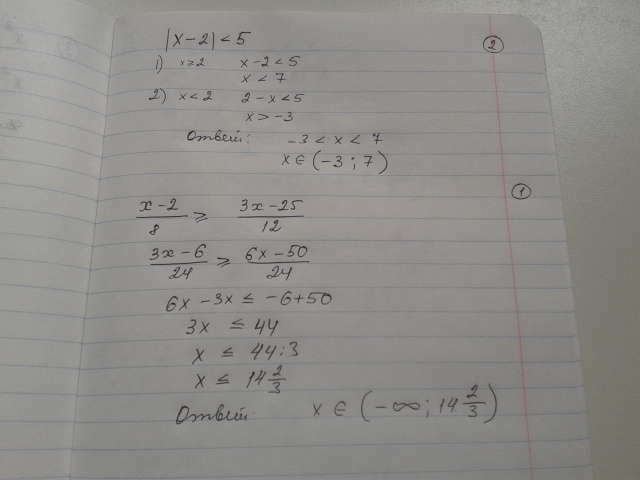 |x-2| < 5
②
1) x≥2 x-2<5
x < 7
2) x<2 2-x<5
x > -3
Ответ: -3 < x < 7
x ∈ (-3; 7)
①
x-2/8 ≥ 3x-25/12
3x-6/24 ≥ 6x-50/24
6x - 3x ≤ -6+50
3x ≤ 44
x ≤ 44:3
x ≤ 14 2/3
Ответ: x ∈ (-∞; 14 2/3)